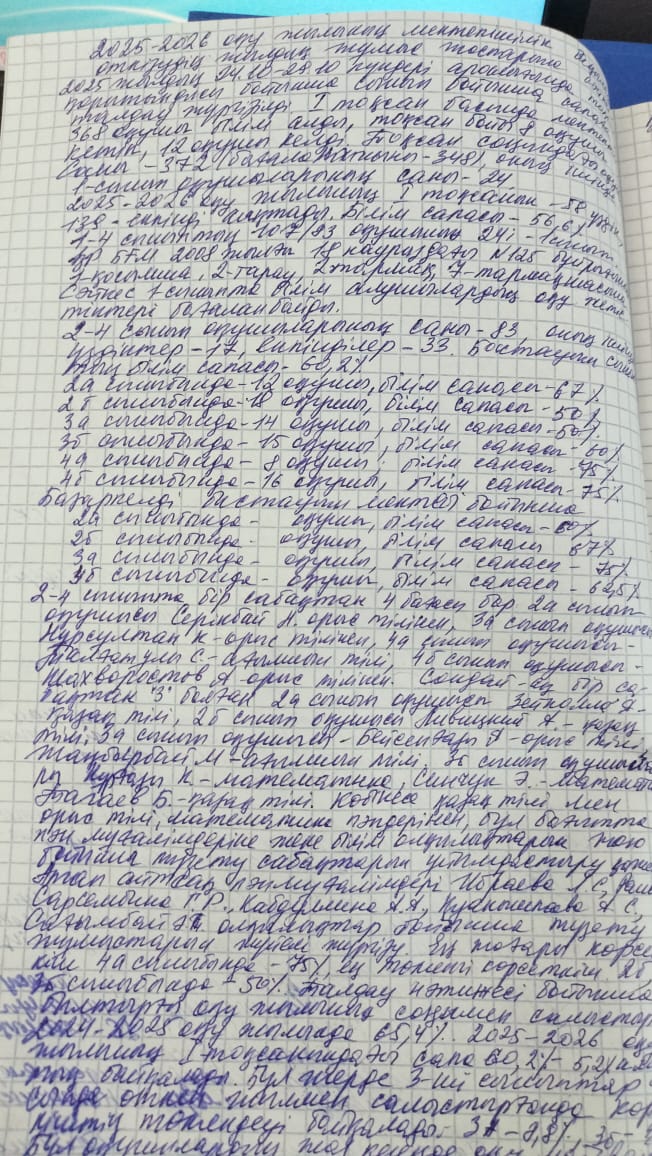 2025-2026 оқу жылының мектепішілік
өткізудің жылдық жұмыс жоспарына
2025 жылдың 24.10-28.10 күндері аралығында
қорытындысы бойынша сынып бойынша сапа
талдау жүргізілді I тоқсан басында мектепте
368 оқушы білім алды, тоқсан бойы 8 оқушы
кетіп, 12 оқушы келді. Тоқсан соңында
саны - 372 (бағаланатыны - 348), оның ішінде
1-сынып оқушыларының саны - 24
2025-2026 оқу жылының I тоқсанын - 58 үздік,
139 - екпінді аяқтады. Білім сапасы - 56,6%
1-4 сыныптың 107/83 оқушының 24і - 1сынып
ҚР БҒМ 2008 жылғы 18 наурыздағы №125 бұйрығының
1-қосымша, 2-тарау, 2-тармақ, 7-тармақшасына
сәйкес 1 сыныпта білім алушылардың оқу жетіс
тіктері бағаланбайды.
2-4 сынып оқушыларының саны - 83, оның ішінде
үздіктер - 17, екпінділер - 33. Бастауыш сынып
тың білім сапасы - 60,2%
2а сыныбында - 12 оқушы, білім сапасы - 67%
2б сыныбында - 18 оқушы, білім сапасы - 50%
3а сыныбында - 14 оқушы, білім сапасы - 50%
3б сыныбында - 15 оқушы, білім сапасы - 60%
4а сыныбында - 8 оқушы, білім сапасы - 75%
4б сыныбында - 16 оқушы, білім сапасы - 75%
бастауыш мектебі бойынша
2а сыныбында - оқушы, білім сапасы - 60%
2б сыныбында - оқушы, білім сапасы 67%
3а сыныбында - оқушы, білім сапасы - 75%
3б сыныбында - оқушы, білім сапасы - 62,5%
2-4 сыныпта бір сабақтан 4 бағасы бар 2а сынып
оқушысы Серікбай Н. орыс тілінен, 3а сынып оқушысы
Нұрсұлтан К - орыс тілінен, 4а сынып оқушысы -
С - ағылшын тілі, 4б сынып оқушысы -
Шахворостов А - орыс тілінен. Сондай-ақ бір са-
бақтан "3" болған 2а сынып оқушысы
қазақ тілі, 2б сынып оқушысы Нивицкий А. - қазақ
тілі, 3а сынып оқушысы - Бейсенғазы А - орыс тілі,
Жаңбырбай М - ағылшын тілі, 3б сынып оқушыла
ры К. - математика, Синчук Э. - Математ
Б. - қазақ тілі. Көбінесе қазақ тілі мен
орыс тілі, математика пәндерінен, бұл бағытта
пән мұғалімдеріне және білім олқылықтарын жою
бойынша түзету сабақтарын ұйымдастыру қажет
Атап айтсақ пән мұғалімдері Ибраева Л.С,
Сарсембина Г.Р., Кабдулмина А.А, А С,
Сағымбай олқылықтар бойынша түзету
жұмыстарын жүйелі жүргізу. Ең жоғары көрсет
кіш 4а сыныбында - 75%, ең төменгі көрсеткіш 2б
3б сыныбында - 50%. Талдау нәтижесі бойынша
былтырғы оқу жылының соңымен салыстыр
2024-2025 оқу жылында 65,4%. 2025-2026 оқу
жылының I тоқсанындағы сапа 60,2% - 5,2%
тық байқалады. Бұл жерде 3-ші сыныптар
сында өткен жылмен салыстырғанда көр
кіштің төмендеуі байқалады. 3А - 8,8%, 3б -
Бұл оқушылардың